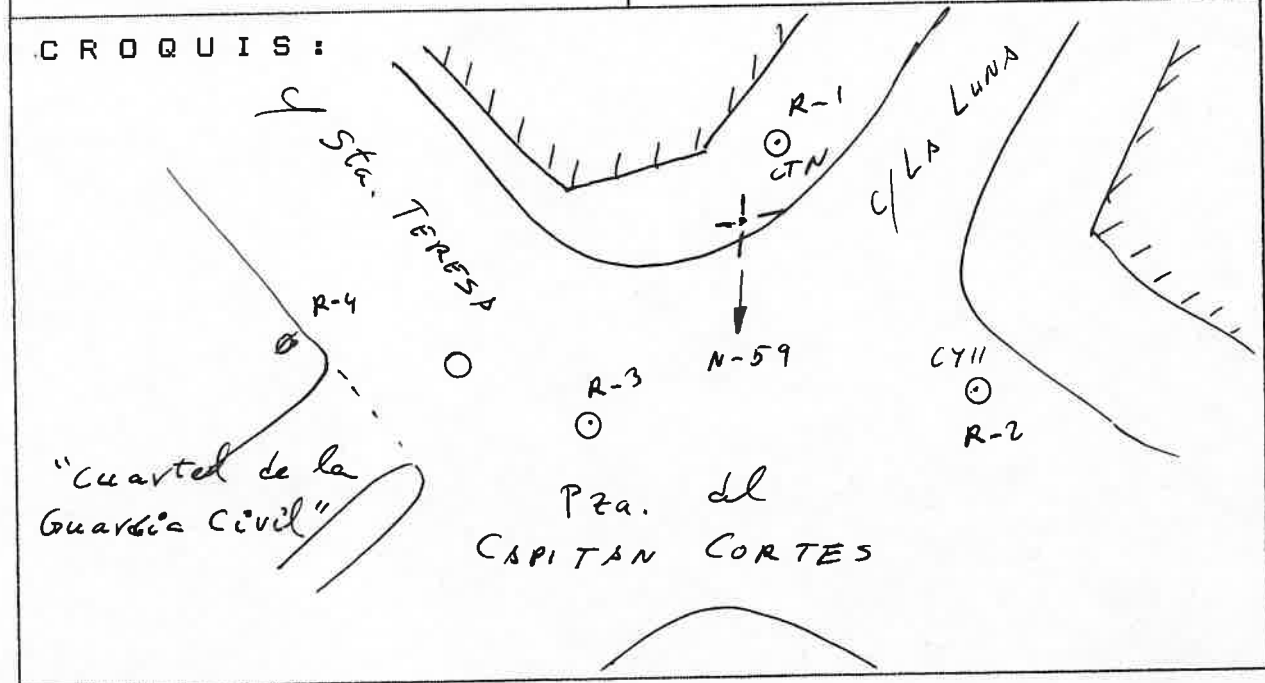 CROQUIS:
C/ Sta. TERESA
R-1
CTN
C/ LA LUNA
N-59
R-4
R-3
CYII
R-2
"Cuartel de la
Guardia Civil"
Pza. del
CAPITAN CORTES